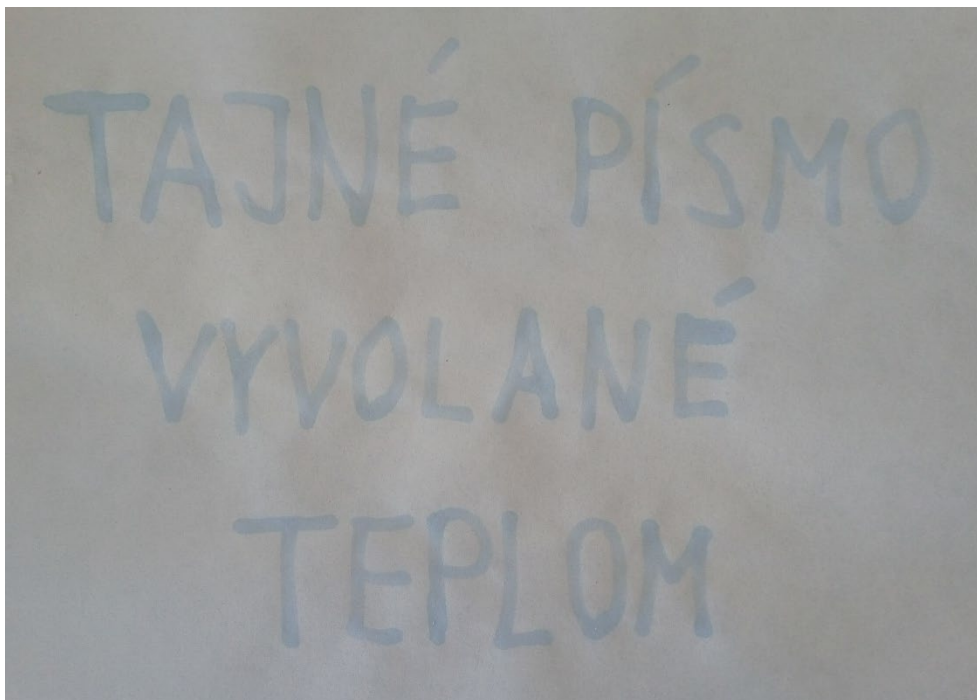 TAJNÉ PÍSMO
VYVOLANÉ
TEPLOM